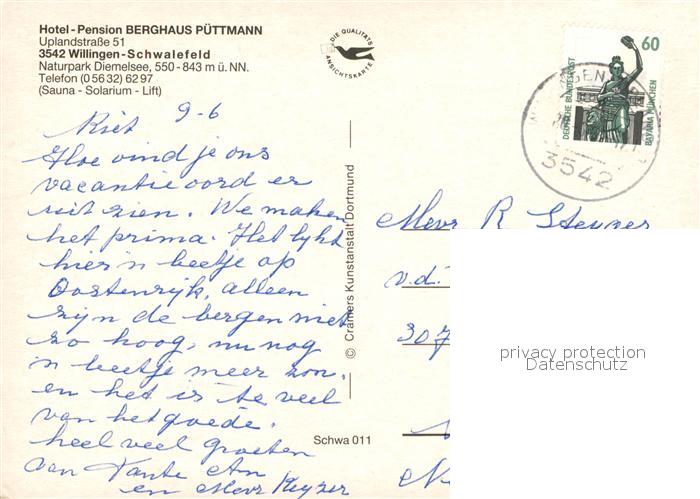 Hotel-Pension BERGHAUS PÜTTMANN
Uplandstraße 51
3542 Willingen-Schwalefeld
Naturpark Diemelsee, 550-843 m ü. NN.
Telefon (0 56 32) 62 97
(Sauna - Solarium - Lift)
DIE QUALITÄTS
ANSICHTSKARTE
60
DEUTSCHE BUNDESPOST
BAVARIA MÜNCHEN
3542
9-6
Riet
Hoe vind je ons
vacantie oord er
uit zien. We maken
het prima. Het lijkt
hier 'n beetje op
Oostenrijk, alleen
zijn de bergen niet
zo hoog, nu nog
'n beetje meer zon,
en het is te veel
van het goede.
heel veel groeten
van Tante An
en Mevr Keyzer
© Cramers Kunstanstalt Dortmund
Schwa 011
Mevr R
v.d.
307
privacy protection
Datenschutz